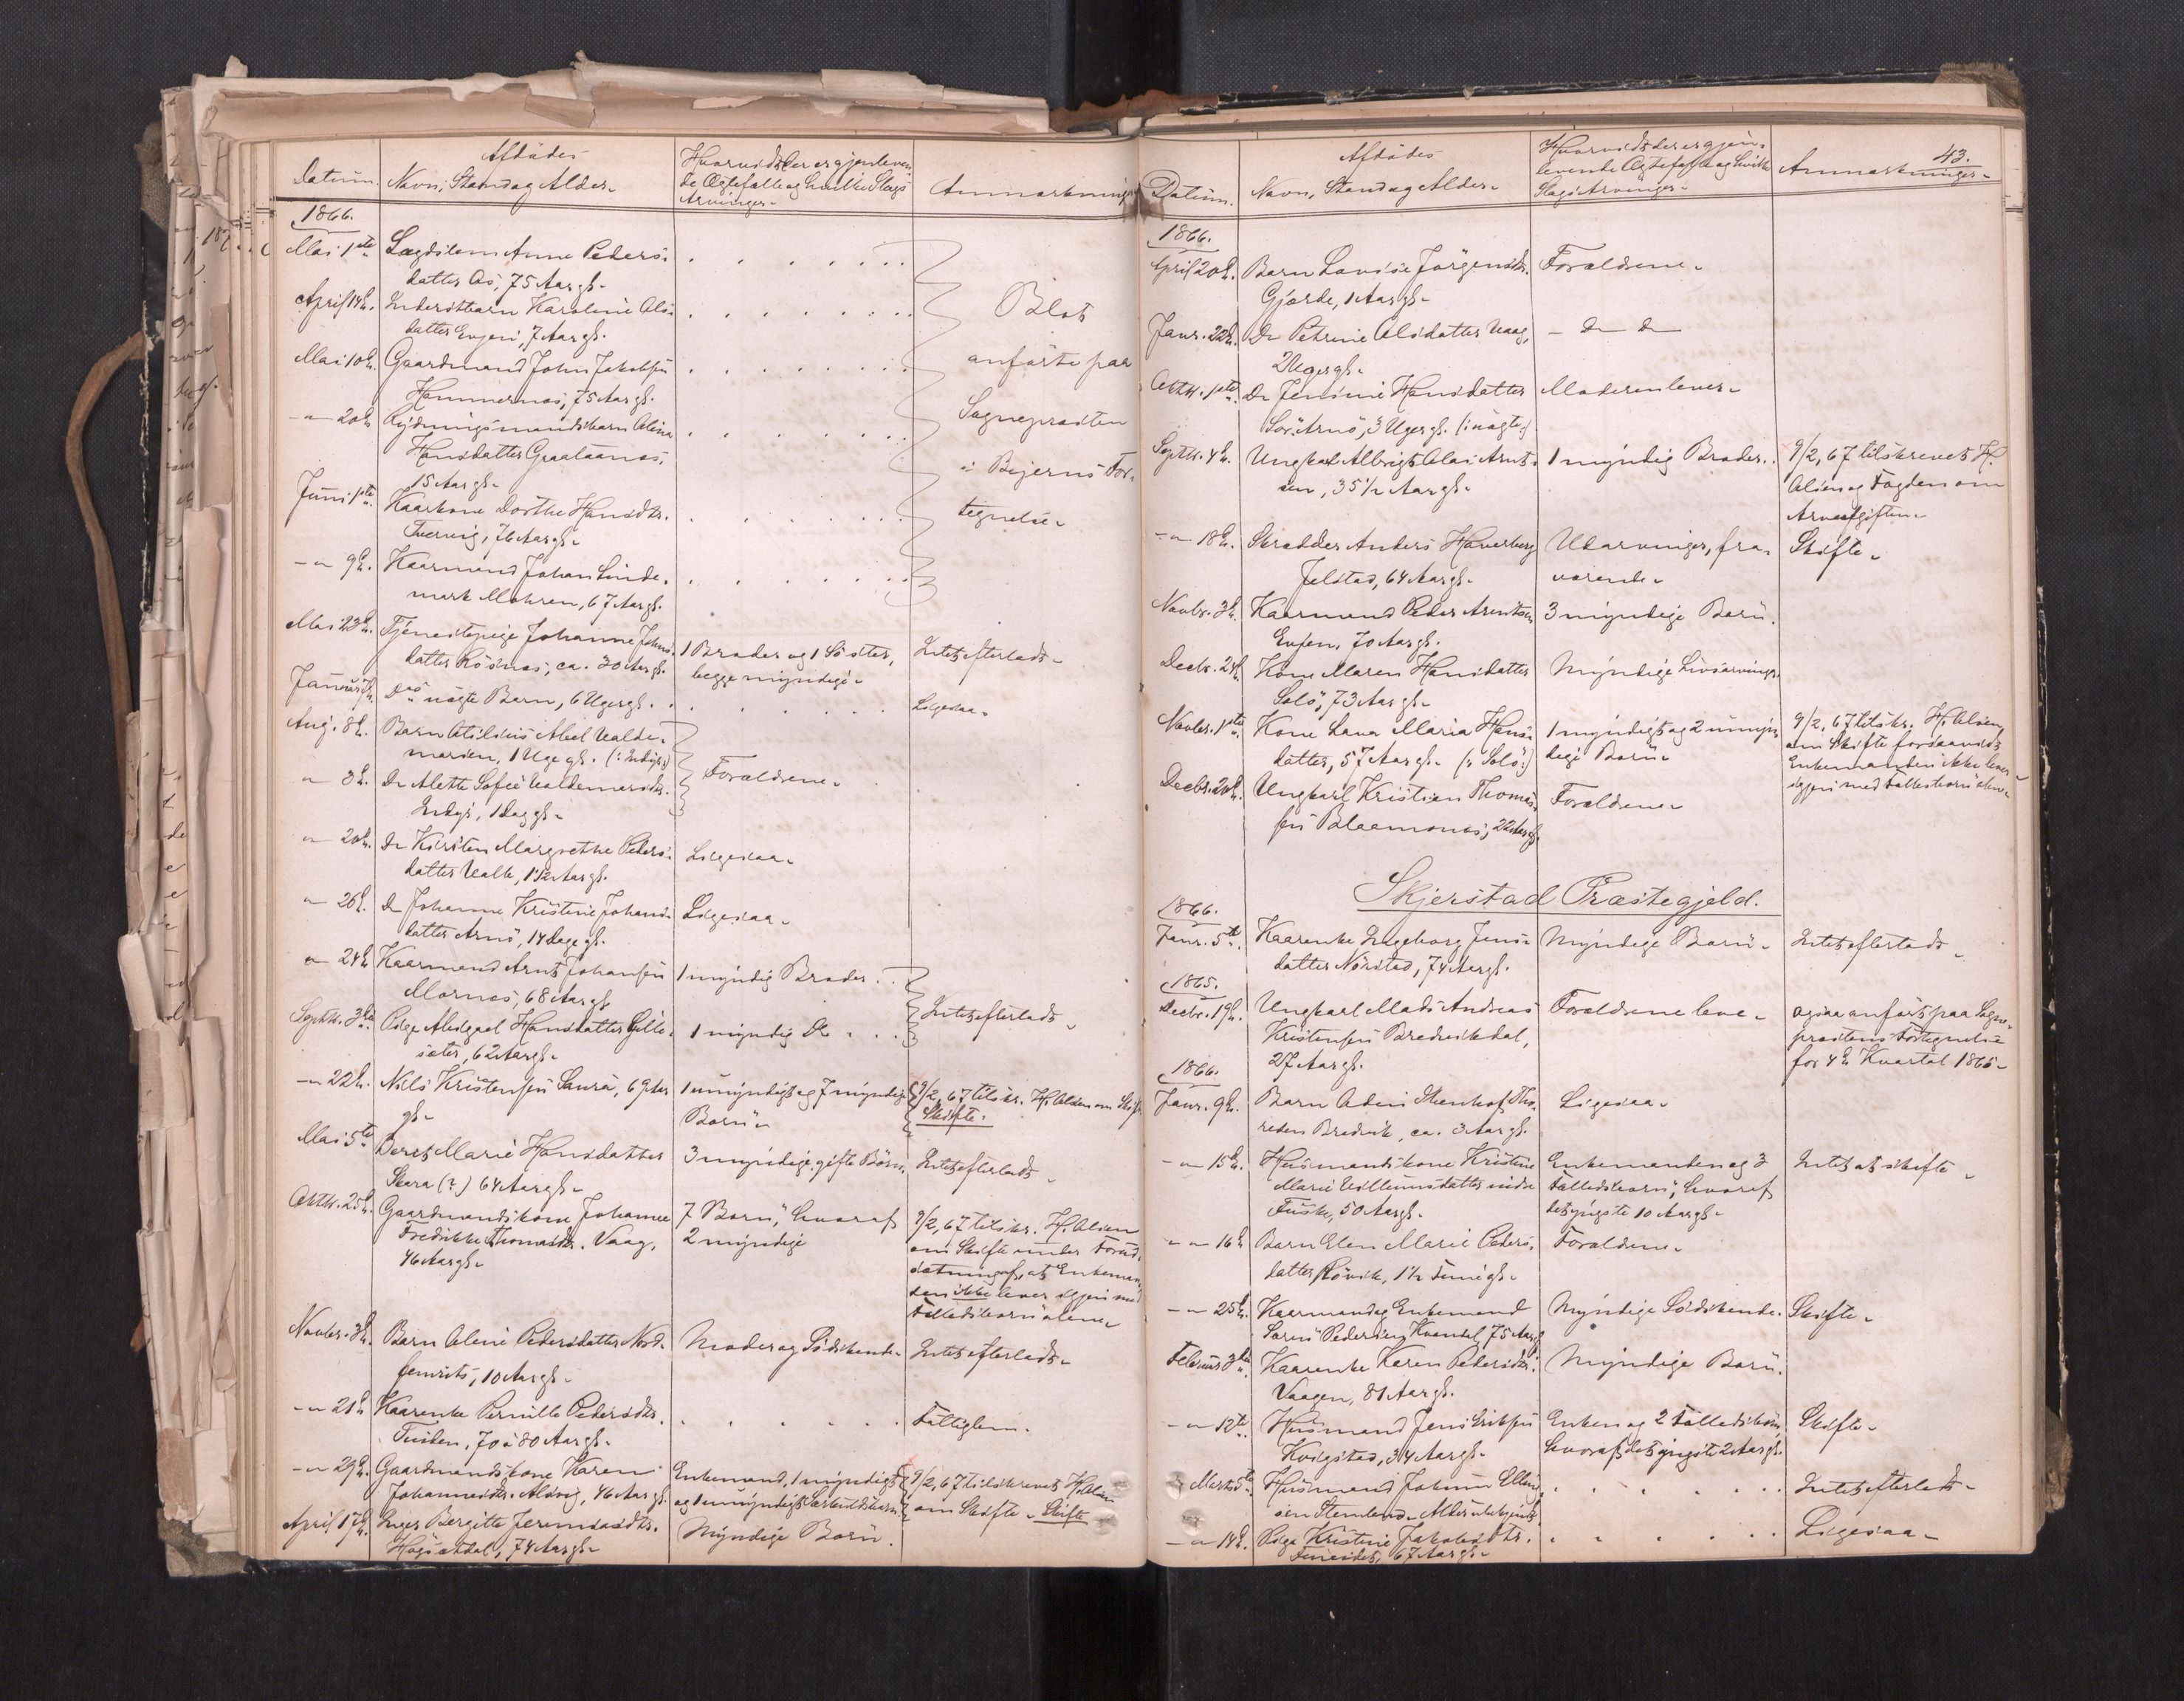 Afdødes
Datum. Navn, Stand og Alder.
Hvorvidt der er gjenleven-
de Ægtefælle og hvilke Slags
Arvinger.
Anmærkninger
1866.
Mai 1ste Lægdslem Anne Peders-
datter Os, 75 Aar gl.
April 14de. Inderstbarn Karoline Ols-
datter Evjen, 7 Aar gl.
Mai 10de. Gaardmand John Jakobsen
Hammernes, 75 Aar gl.
20de Rydningsmandsbarn Olina
Hansdatter Graataanes,
15 Aar gl.
Juni 1ste Kaarkone Dorthe Hansdtr.
Tvervig, 76 Aar gl.
9de. Kaarmand Johan Linde-
mark Mohren, 67 Aar gl.
Blot
anførte paa
Sognepræsten
i Bejerns For-
tegnelse
Mai 23de. Tjenestepige Johanne Johns-
datter Røsnes, ca. 30 Aar gl.
1 Broder og 1 Søster,
begge myndige
Intet efterladt
Januar Ds uægte Barn, 6 Uger gl.
Ligesaa
Aug. 8de. Barn Otilius Abel Valde-
marsen, 1 Uge gl. (: Indyr:)
3de. Do Alette Sofie Valdemarsdtr.
Indyr, 1 Dag gl.
Forældrene
20de. Do Kirsten Margrethe Peders-
datter Valle, 1 1/2 Aar gl.
Ligesaa
26de. Do Johanne Kristine Johans-
datter Arnø, 14 Dage gl.
Ligesaa
24de Kaarmand Arnt Johansen
Mornes, 68 Aar gl.
1 myndig Broder
Septbr. 3die Pige Abelgael Hansdatter Gille-
sæter, 62 Aar gl.
1 myndig Do
Intet efterladt
22de. Nils Kristensen Saura, 69 Aar
gl.
1 umyndigt og 7 myndige
Børn
9/2, 67 tilskr. H. Olsen om Skifte
Skifte.
Mai 5te Beret Marie Hansdatter
Skora (?) 64 Aar gl.
3 myndige gifte Børn.
Intet efterladt
Oktbr. 25de. Gaardmandskone Johanna
Fredrikke Thomasdtr. Vaag,
46 Aar gl.
7 Børn, hvoraf
2 myndige
9/2, 67 tilskr. H. Olsen
om Skifte under Forud-
sætning af, at Enkeman-
den ikke lever igjen med
Fællesbørn alene
Novbr. 3de. Barn Oline Pedersdatter Nord-
10 Aar gl.
Moder og Sødskende
Intet efterladt
21de Kaarenke Pernille Pedersdtr.
70 à 80 Aar gl.
Fattiglem.
29de. Gaardmandskone Karen
Johannesdtr. Alsvig, 46 Aar gl.
Enkemand, 1 myndigt
og 1 umyndigt Særkuldsbarn
9/2, 67 tilskrevet H. Olsen
om Skifte. Skifte
April 17de. Inger Bergitte Jeremiasdtr.
Høgsetdal, 74 Aar gl.
Myndige Børn.
43.
Afdødes
Datum. Navn, Stand og Alder.
Hvorvidt der er gjen-
levende Ægtefælle og hvilke
Slags Arvinger.
Anmærkninger
1866.
April 20de. Barn Lovise Jørgensdtr.
Gjærde, 1 Aar gl.
Forældrene
Janr. 22de. Do Petrine Olsdatter Vaag,
2 Uger gl.
Do Do
Oktbr. 1ste Do Jensine Hansdatter
Sør Arnø, 3 Uger gl. (: uægte:)
Moderen lever
Septbr. 4de. Ungkarl Albrigt Olai Arnt-
sen, 35 1/2 Aar gl.
1 myndig Broder.
9/2, 67 tilskrevet H.
Olsen og Fogden om
Arveafgiften
18de. Skrædder Anders Haverberg
Jelstad, 64 Aar gl.
Udarvinger, fra-
værende
Skifte
Novbr. 3de. Kaarmand Peder Arentsen
Evjen, 70 Aar gl.
3 myndige Børn.
Decbr. 24de Kone Maren Hansdatter
Solø, 73 Aar gl.
Myndige Livsarvinger.
Novbr. 1ste Kone Lava Maria Hans-
datter, 57 Aar gl. (: Solø:)
1 myndigt og 2 umyn-
dige Børn
9/2, 67 tilskr. H. Olsen
om Skifte forsaavidt
Enkemanden ikke lever
igjen med Fællesbørn alene
Decbr. 20de. Ungkarl Kristian Thomas-
sen Blaamones, 22 Aar gl.
Forældrene
Skjerstad Præstegjeld.
1866.
Janr. 5te. Kaarenke Ingeborg Jens-
datter Nørstad, 74 Aar gl.
Myndige Børn
Intet efterladt
1865.
Decbr. 19de. Ungkarl Mads Andreas
Kristensen Bredvikdal,
27 Aar gl.
Forældrene leve
ogsaa anført paa Sogne-
præstens Fortegnelse
for 4de Kvartal 1865
1866.
Janr. 9de. Barn Odin Steenhof Tho-
resen Bredvik, ca. 3 Aar gl.
Ligesaa
15de. Husmandskone Kristine
Marie Villumsdatter
Fuske, 50 Aar gl.
Enkemanden og 3
Fælledsbørn, hvoraf
det yngste 10 Aar gl.
Intet at skifte
16de Barn Elen Marie Peders-
datter Løvik, 1 1/2 Time gl.
Forældrene
25de. Kaarmand og Enkemand
Søren Pedersen Kvændal, 75 Aar gl.
Myndige Sødskende.
Skifte
Februar 3die Kaarenke Karen Pedersdtr.
Vaagen, 81 Aar gl.
Myndige Børn.
12te. Husmand Jens Eriksen
Kvigstad, 34 Aar gl.
Enken og 2 Fælledsbørn,
hvoraf det yngste 2 Aar gl.
Skifte
Marts 5te Husmand Johan Elling-
sen Stemland. Alder ubekjendt
Intet efterladt
14de. Pige Kristine Jakobsdtr.
67 Aar gl.
Ligesaa